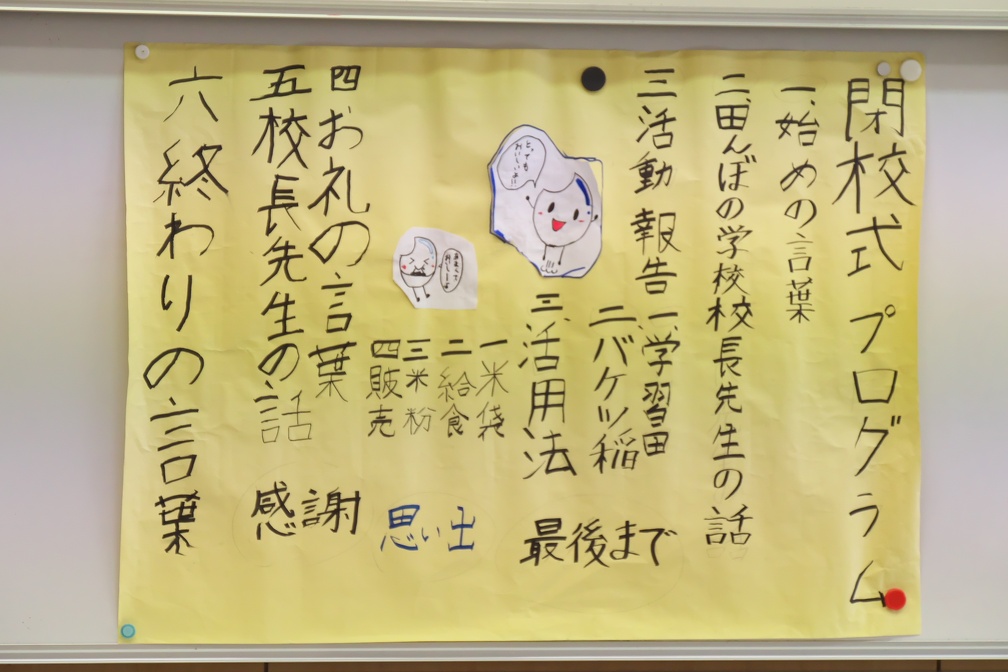 閉校式プログラム
一、始めの言葉
二、田んぼの学校校長先生の話
三活動報告
一、学習田
二バケツ稲
三、活用法
一米袋
二給食
三米粉
四販売
四お礼の言葉
五校長先生の話
六終わりの言葉
とっても
おいしいよ!!
最後まで
思い出
感謝